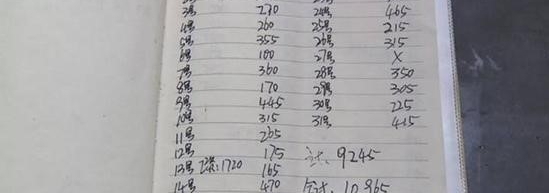 3号 270
4号 260
5号 355
6号 100
7号 360
8号 170
9号 445
10号 315
11号 205
12号 175
13号 1720 165
14号 470
24号 465
25号 215
26号 315
27号 X
28号 350
29号 305
30号 225
31号 415
9245
10965